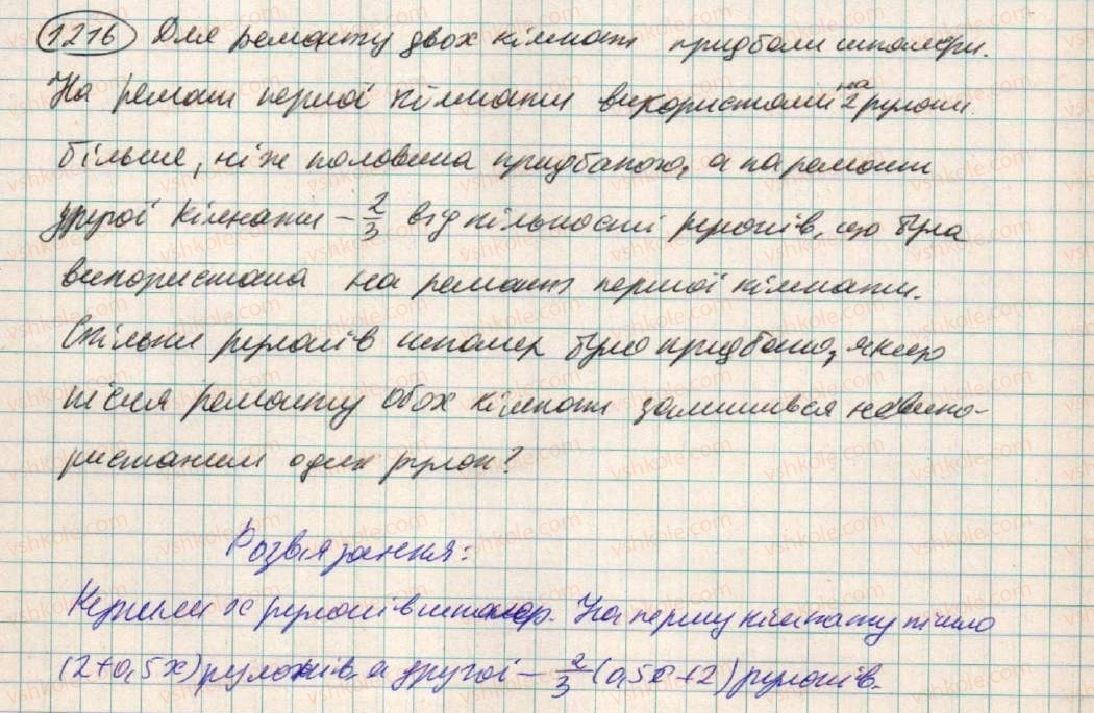 1216 Для ремонту двох кімнат придбали шпалери.
На ремонт першої кімнати використали на 2 рулони
більше, ніж половина придбаного, а на ремонт
другої кімнати – 2/3 від кількості рулонів, що була
використана на ремонт першої кімнати.
Скільки рулонів шпалер було придбано, якщо
після ремонту обох кімнат залишився невико-
ристаним один рулон?
Розв'язання:
Купили x рулонів шпалер. На першу кімнату пішло
(2+0,5x) рулонів, а другої – 2/3 (0,5x+2) рулонів.